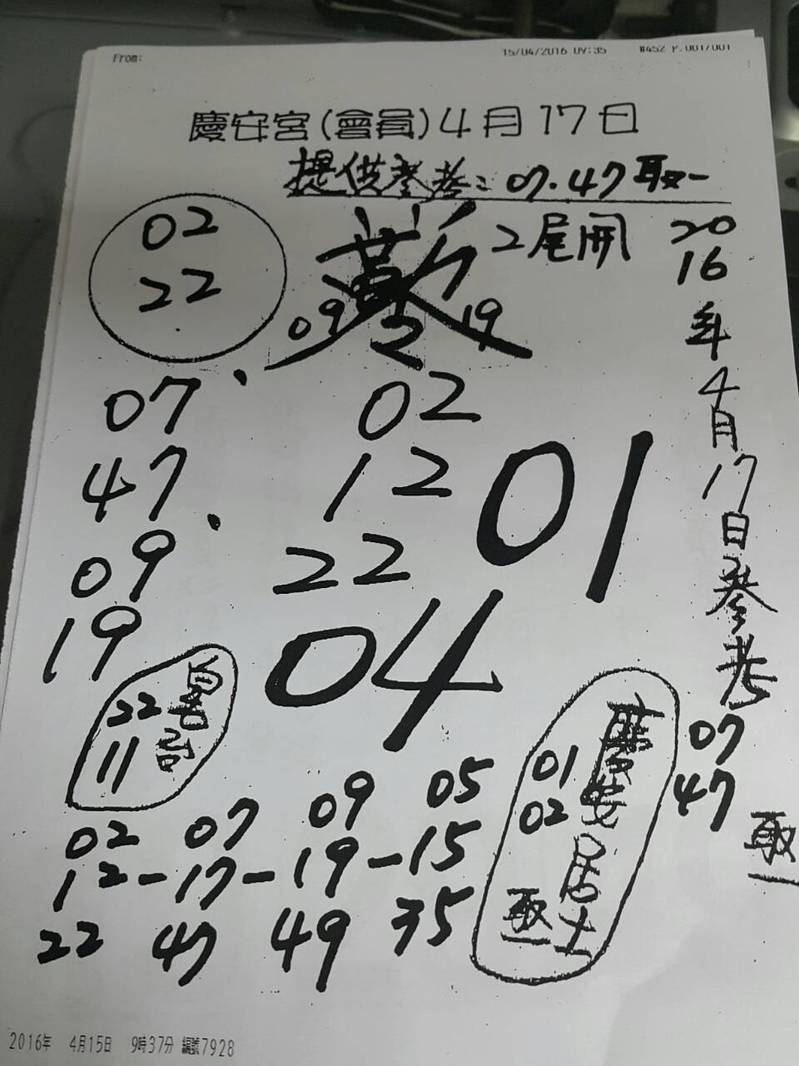 From: 15/04/2016 09:35 #452 P.001/001
慶安宮(會員)4月17日
提供參考: 07.47取一
02
22
2尾開
09 2 19
2016年4月17日參考
07
47
取一
07
47
09
19
02
12
22
01
04
22
11
慶安居士
01
02
取一
02 07 09 05
12-17-19-15
22 47 49 35
2016年 4月15日 9時37分 編號7928